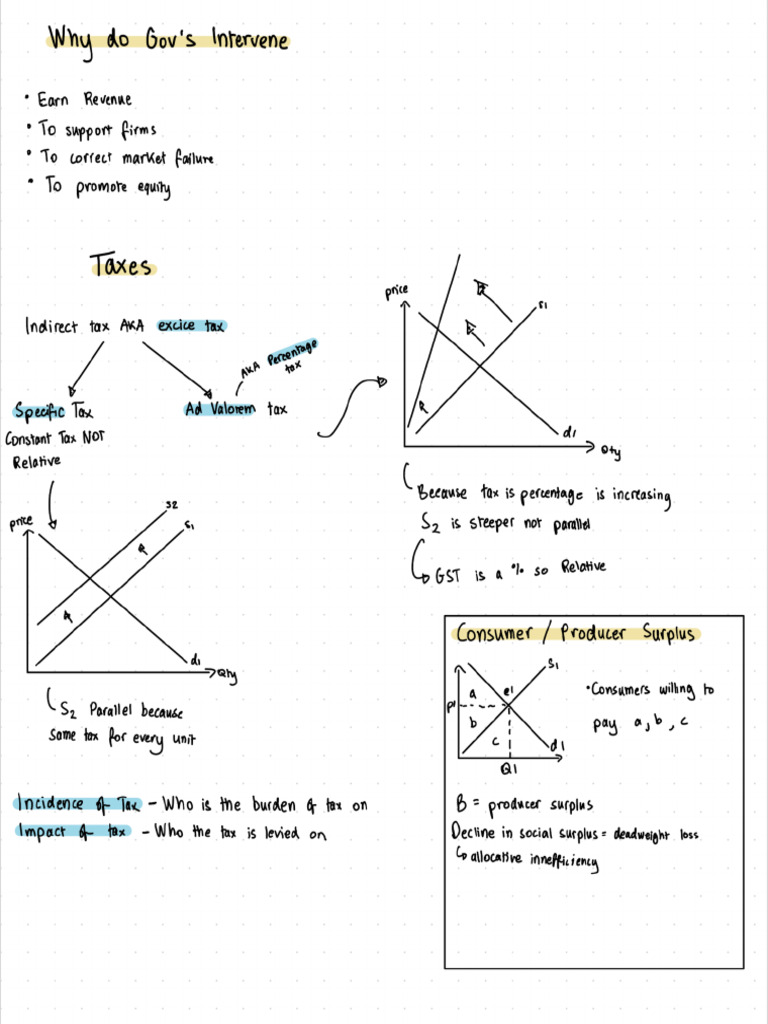 Why do Gov's Intervene
• Earn Revenue
• To support firms
• To correct market failure
• To promote equity
Taxes
Indirect tax AKA excice tax
AKA Percentage
tax
Specific Tax
Ad Valorem tax
Constant Tax NOT
Relative
price
S1
d1
Qty
Because tax is percentage is increasing
S2 is steeper not parallel
GST is a % so Relative
price
S2
S1
d1
Qty
S2 Parallel because
Same tax for every unit
Incidence of Tax - Who is the burden of tax on
Impact of tax - Who the tax is levied on
Consumer / Producer Surplus
S1
a
e1
P1
b
c
d1
Q1
• Consumers willing to
pay a, b, c
B = producer surplus
Decline in social surplus = deadweight loss
allocative innefficiency